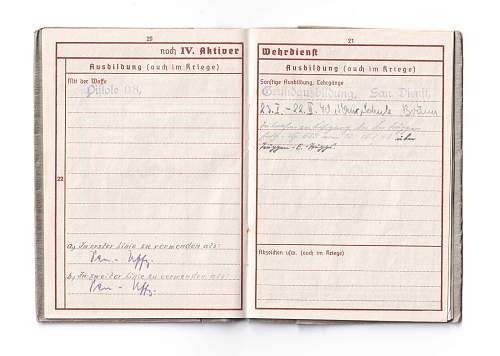 20
noch IV. Aktiver
Ausbildung (auch im Kriege)
Mit der Waffe
Pistole 08,
22
a.) In erster Linie zu verwenden als:
San.- Uffz.
b.) In zweiter Linie zu verwenden als:
San.- Uffz.
21
Wehrdienst
Ausbildung (auch im Kriege)
Sonstige Ausbildung, Lehrgänge
Grundausbildung, San. Dienst,
Brünn
über
Abzeichen usw. (auch im Kriege)